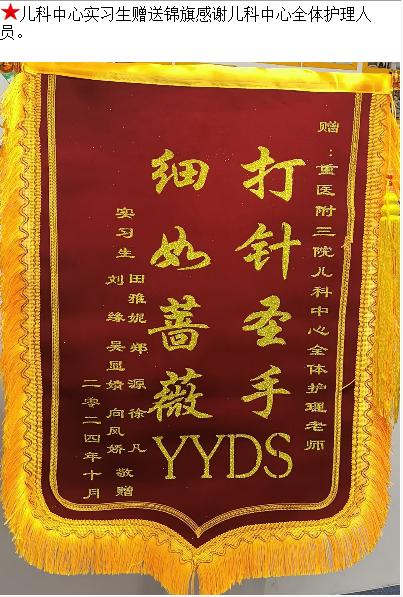 ★儿科中心实习生赠送锦旗感谢儿科中心全体护理人
员。
赠：重医附三院儿科中心全体护理老师
打针圣手
细如蔷薇
YYDS
实习生 田雅妮 郑源 徐凡
刘缘 吴显婧 向凤娇 敬赠
二零二四年十月